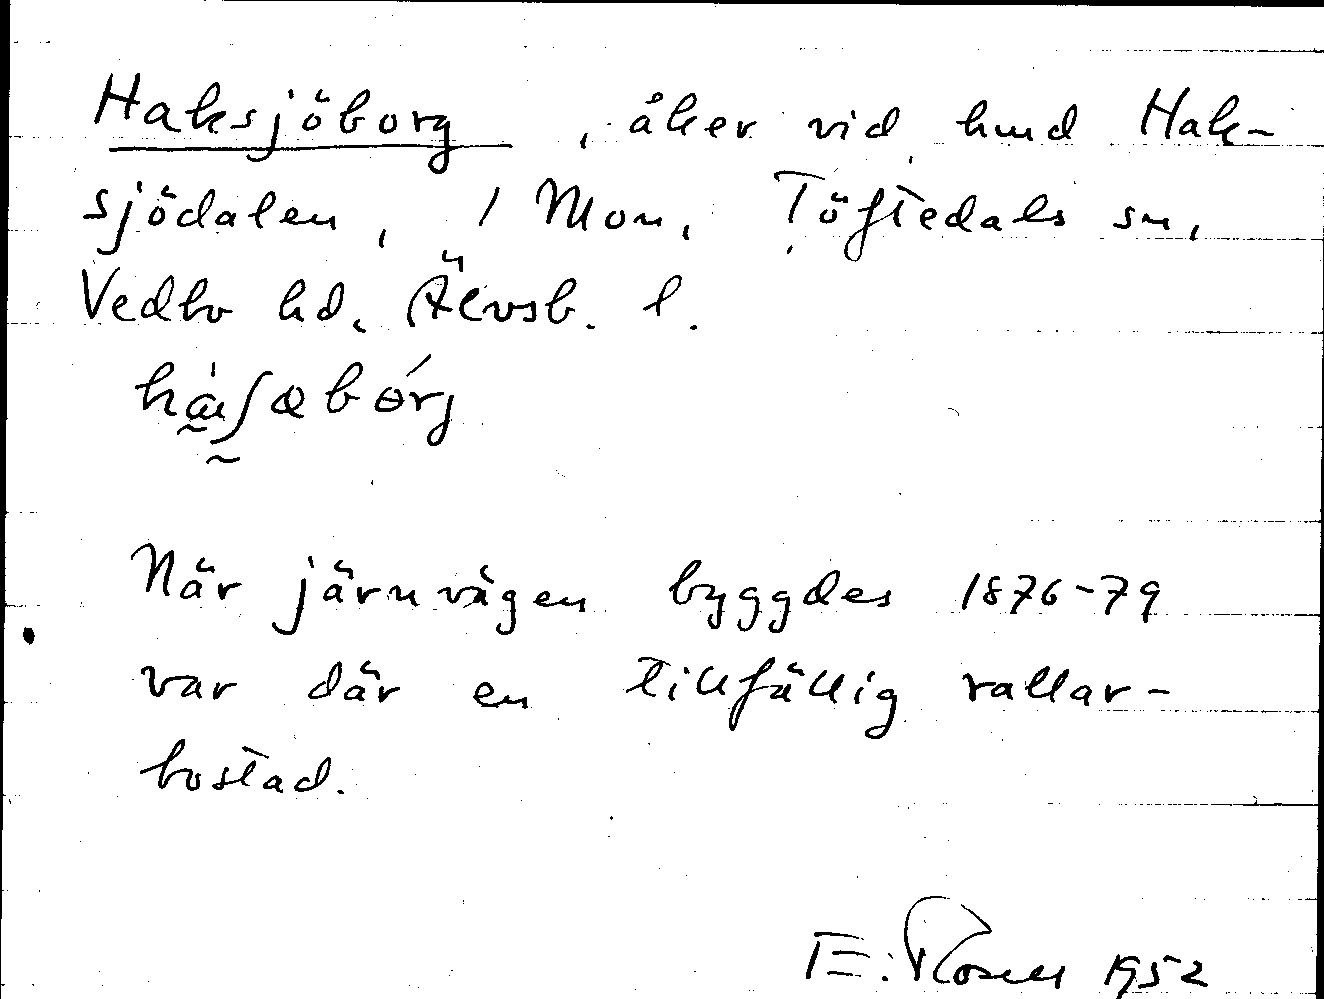 Haksjöborg, åker vid hmd Hak-
sjödalen, 1 Mon, Töftedals sn,
Vedbo hd, Älvsb. l.
När järnvägen byggdes 1876-79
var där en tillfällig rallar-
bostad.
E. Rosell 1952